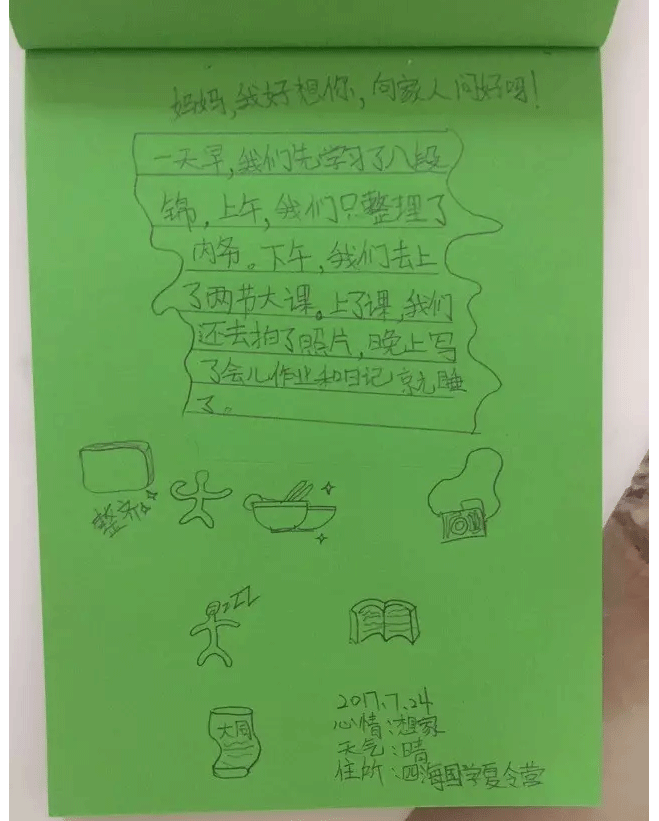 妈妈,我好想你,向家人问好呀!
一天早,我们先学习了八段
锦,上午,我们只整理了
内务。下午,我们去上
了两节大课。上了课,我们
还去拍了照片,晚上写
了会儿作业和日记就睡
了。
整齐
zzz
大同
2017.7.24
心情:想家
天气:晴
住所:四海国学夏令营